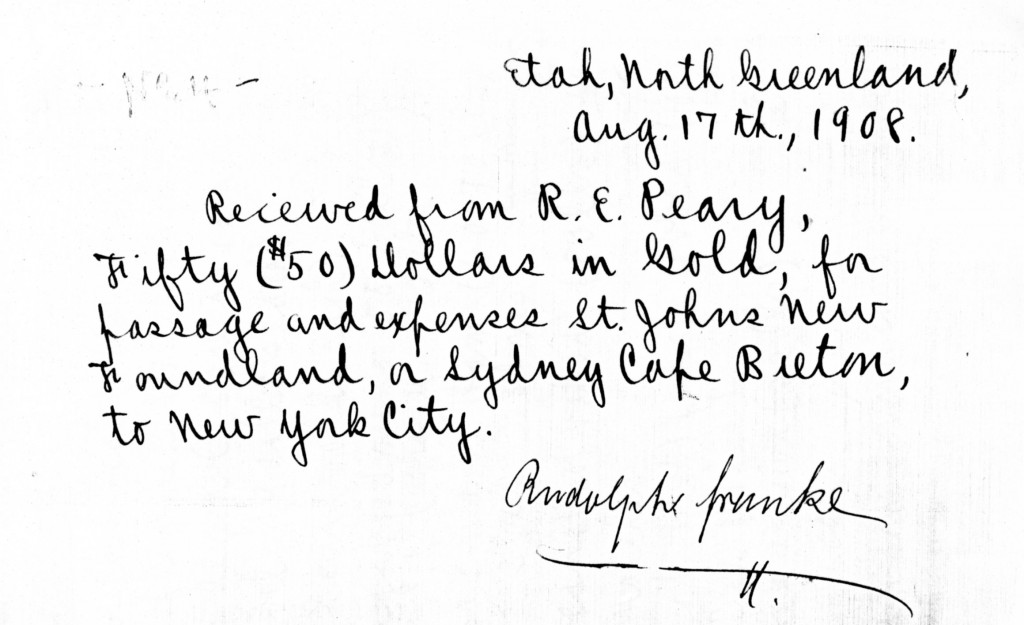 Etah, North Greenland,
Aug. 17th., 1908.
Reciewed from R. E. Peary,
Fifty ($50) Dollars in Gold, for
passage and expenses St. Johns New
Foundland, or Sydney Cape Breton,
to New York City.
Rudolph Franke